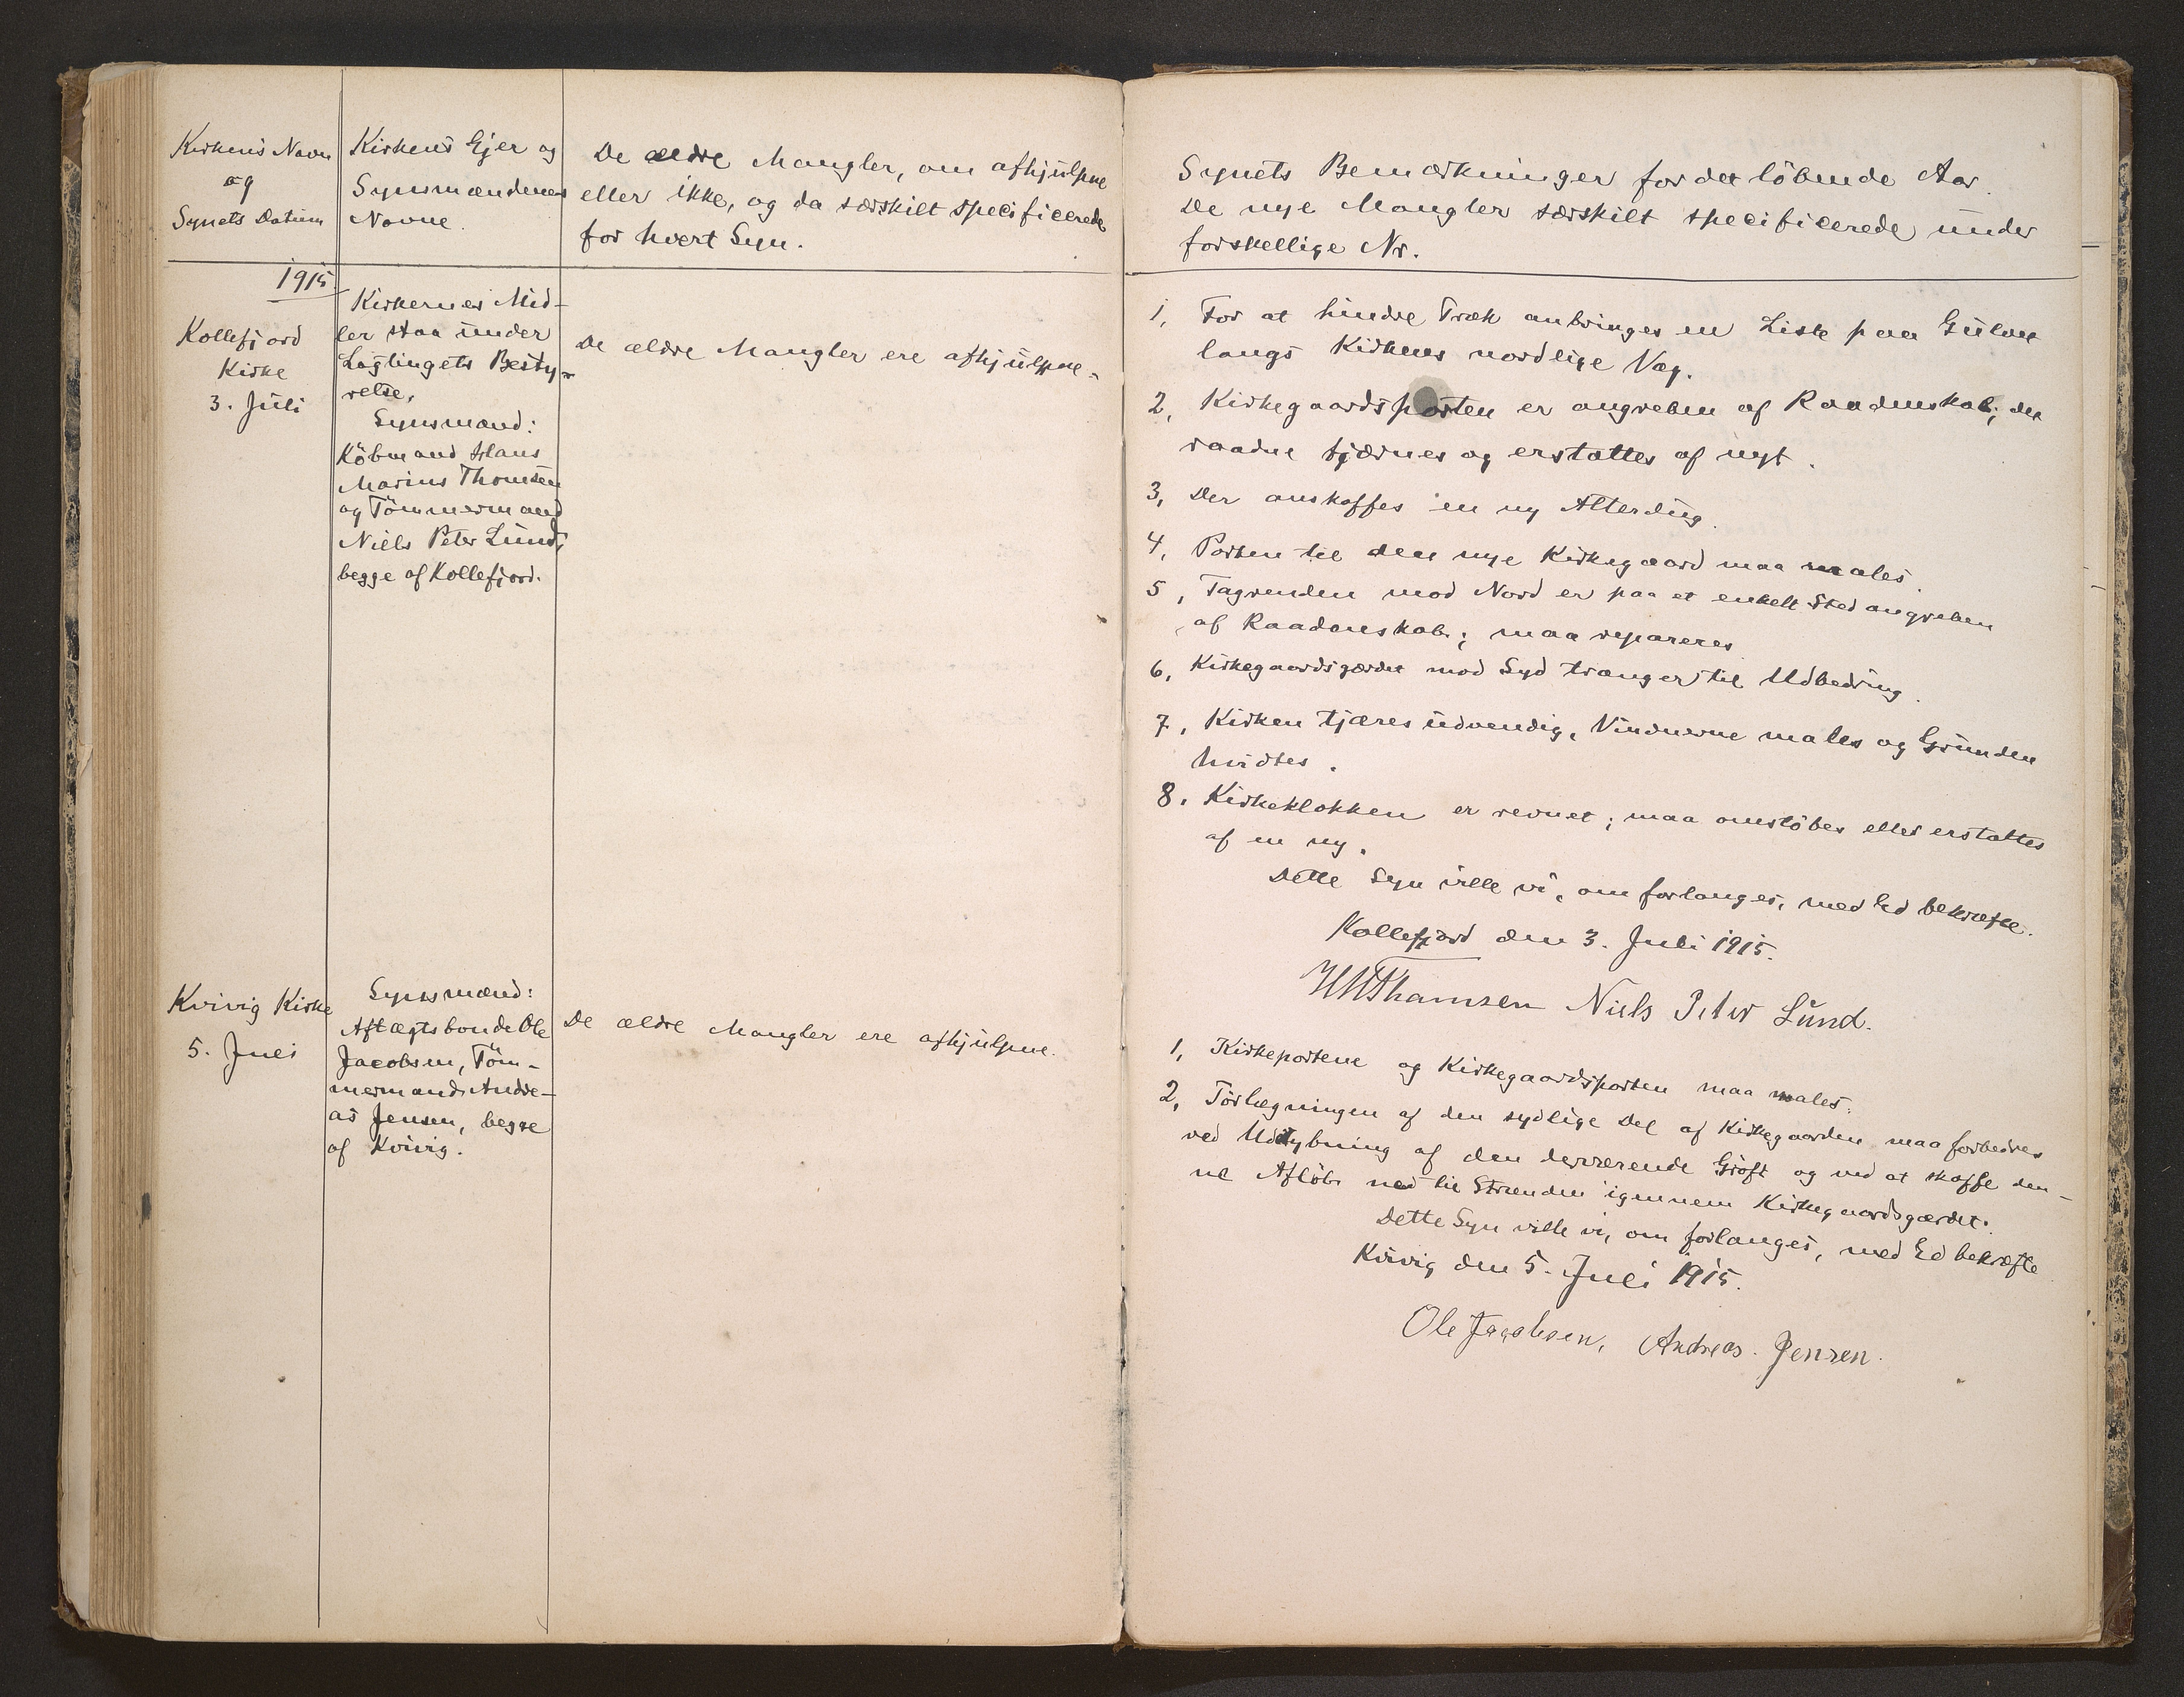 Kirkens Navn
og
Synets Datum
Kirkens Ejer og
Synsmændenes
Navne.
De ældre Mangler, om afhjulpne
eller ikke, og da særskilt specificerede
for hvert Syn.
1915.
Kollefjord
Kirke
3. Juli
Kirkernes Mid-
ler staa under
Lagtingets Besty-
relse,
Synsmænd:
Köbmand Hans
Marius Thomsen
og Tömmermand
Niels Peter Lund,
begge af Kollefjord.
De ældre Mangler ere afhjulpne.
Kvivig Kirke
5. Juli
Synsmænd:
Aftægtsbonde Ole
Jacobsen, Töm-
mermand Andre-
as Jensen, begge
af Kvivig.
De ældre Mangler ere afhjulpne.
Synets Bemærkninger for det löbende Aar.
De nye Mangler særskilt specificerede under
forskellige Nr.
1, For at hindre Træk anbringes en Liste paa Gulvet
langs Kirkens nordlige Væg.
2, Kirkegaardsporten er angreben af Raadenskab; det
raadne fjærnes og erstattes af nyt.
3, Der anskaffes en ny Alterdug.
4, Porten til den nye Kirkegaard maa males.
5, Tagrenden mod Nord er paa et enkelt Sted angreben
af Raadenskab; maa repareres
6, Kirkegaardsgærdet mod Syd trænger til Udbedring.
7, Kirken tjæres udvendig, Vinduerne males og Grunden
hvidtes.
8, Kirkeklokken er revnet; maa omstöbes eller erstattes
af en ny.
Dette Syn ville vi, om forlanges, med Ed bekræfte.
Kollefjord den 3. Juli 1915.
HMThomsen Niels Peter Lund.
1, Kirkeportene og Kirkegaardsporten maa males.
2, Törlægningen af den sydlige Del af Kirkegaarden maa forbedres
ved Uddybning af den derværende Gröft og ved at skaffe den-
ne Aflöb ned til Stranden igennem Kirkegaardsgærdet.
Dette Syn ville vi, om forlanges, med Ed bekræfte
Kvivig den 5. Juli 1915.
Ole Jacobsen, Andreas Jensen.